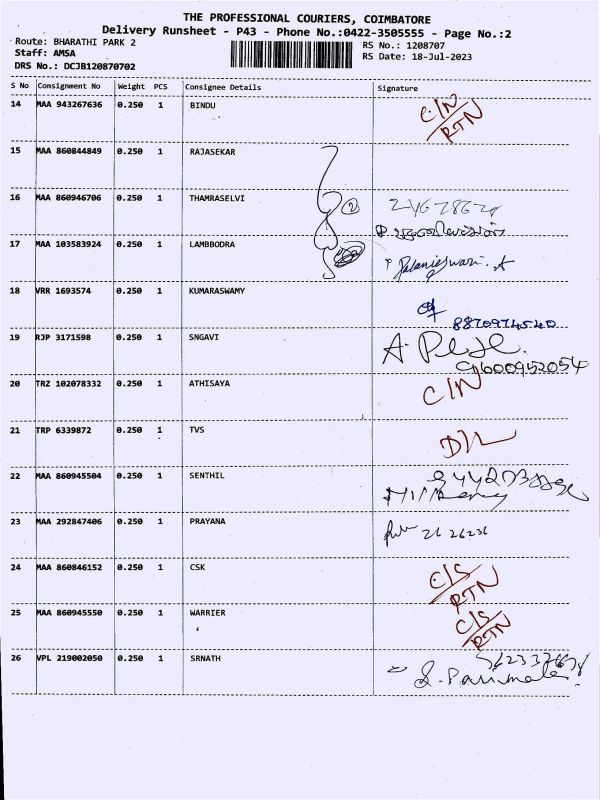 THE PROFESSIONAL COURIERS, COIMBATORE
Delivery Runsheet - P43 - Phone No.:0422-3505555 - Page No.:2
Route: BHARATHI PARK 2
RS No.: 1208707
Staff: AMSA
RS Date: 18-Jul-2023
DRS No.: DCJB120870702
S No Consignment No Weight PCS Consignee Details Signature
14 MAA 943267636 0.250 1 BINDU C/N
RTN
15 MAA 860844849 0.250 1 RAJASEKAR
16 MAA 860946706 0.250 1 THAMRASELVI
17 MAA 103583924 0.250 1 LAMBBODRA
18 VRR 1693574 0.250 1 KUMARASWAMY
8870974540
19 RJP 3171598 0.250 1 SNGAVI
9600952054
20 TRZ 102078332 0.250 1 ATHISAYA C/N
21 TRP 6339872 0.250 1 TVS
22 MAA 860945504 0.250 1 SENTHIL
23 MAA 292847406 0.250 1 PRAYANA
24 MAA 860846152 0.250 1 CSK C/S
RTN
25 MAA 860945550 0.250 1 WARRIER C/S
RTN
26 VPL 219002050 0.250 1 SRNATH